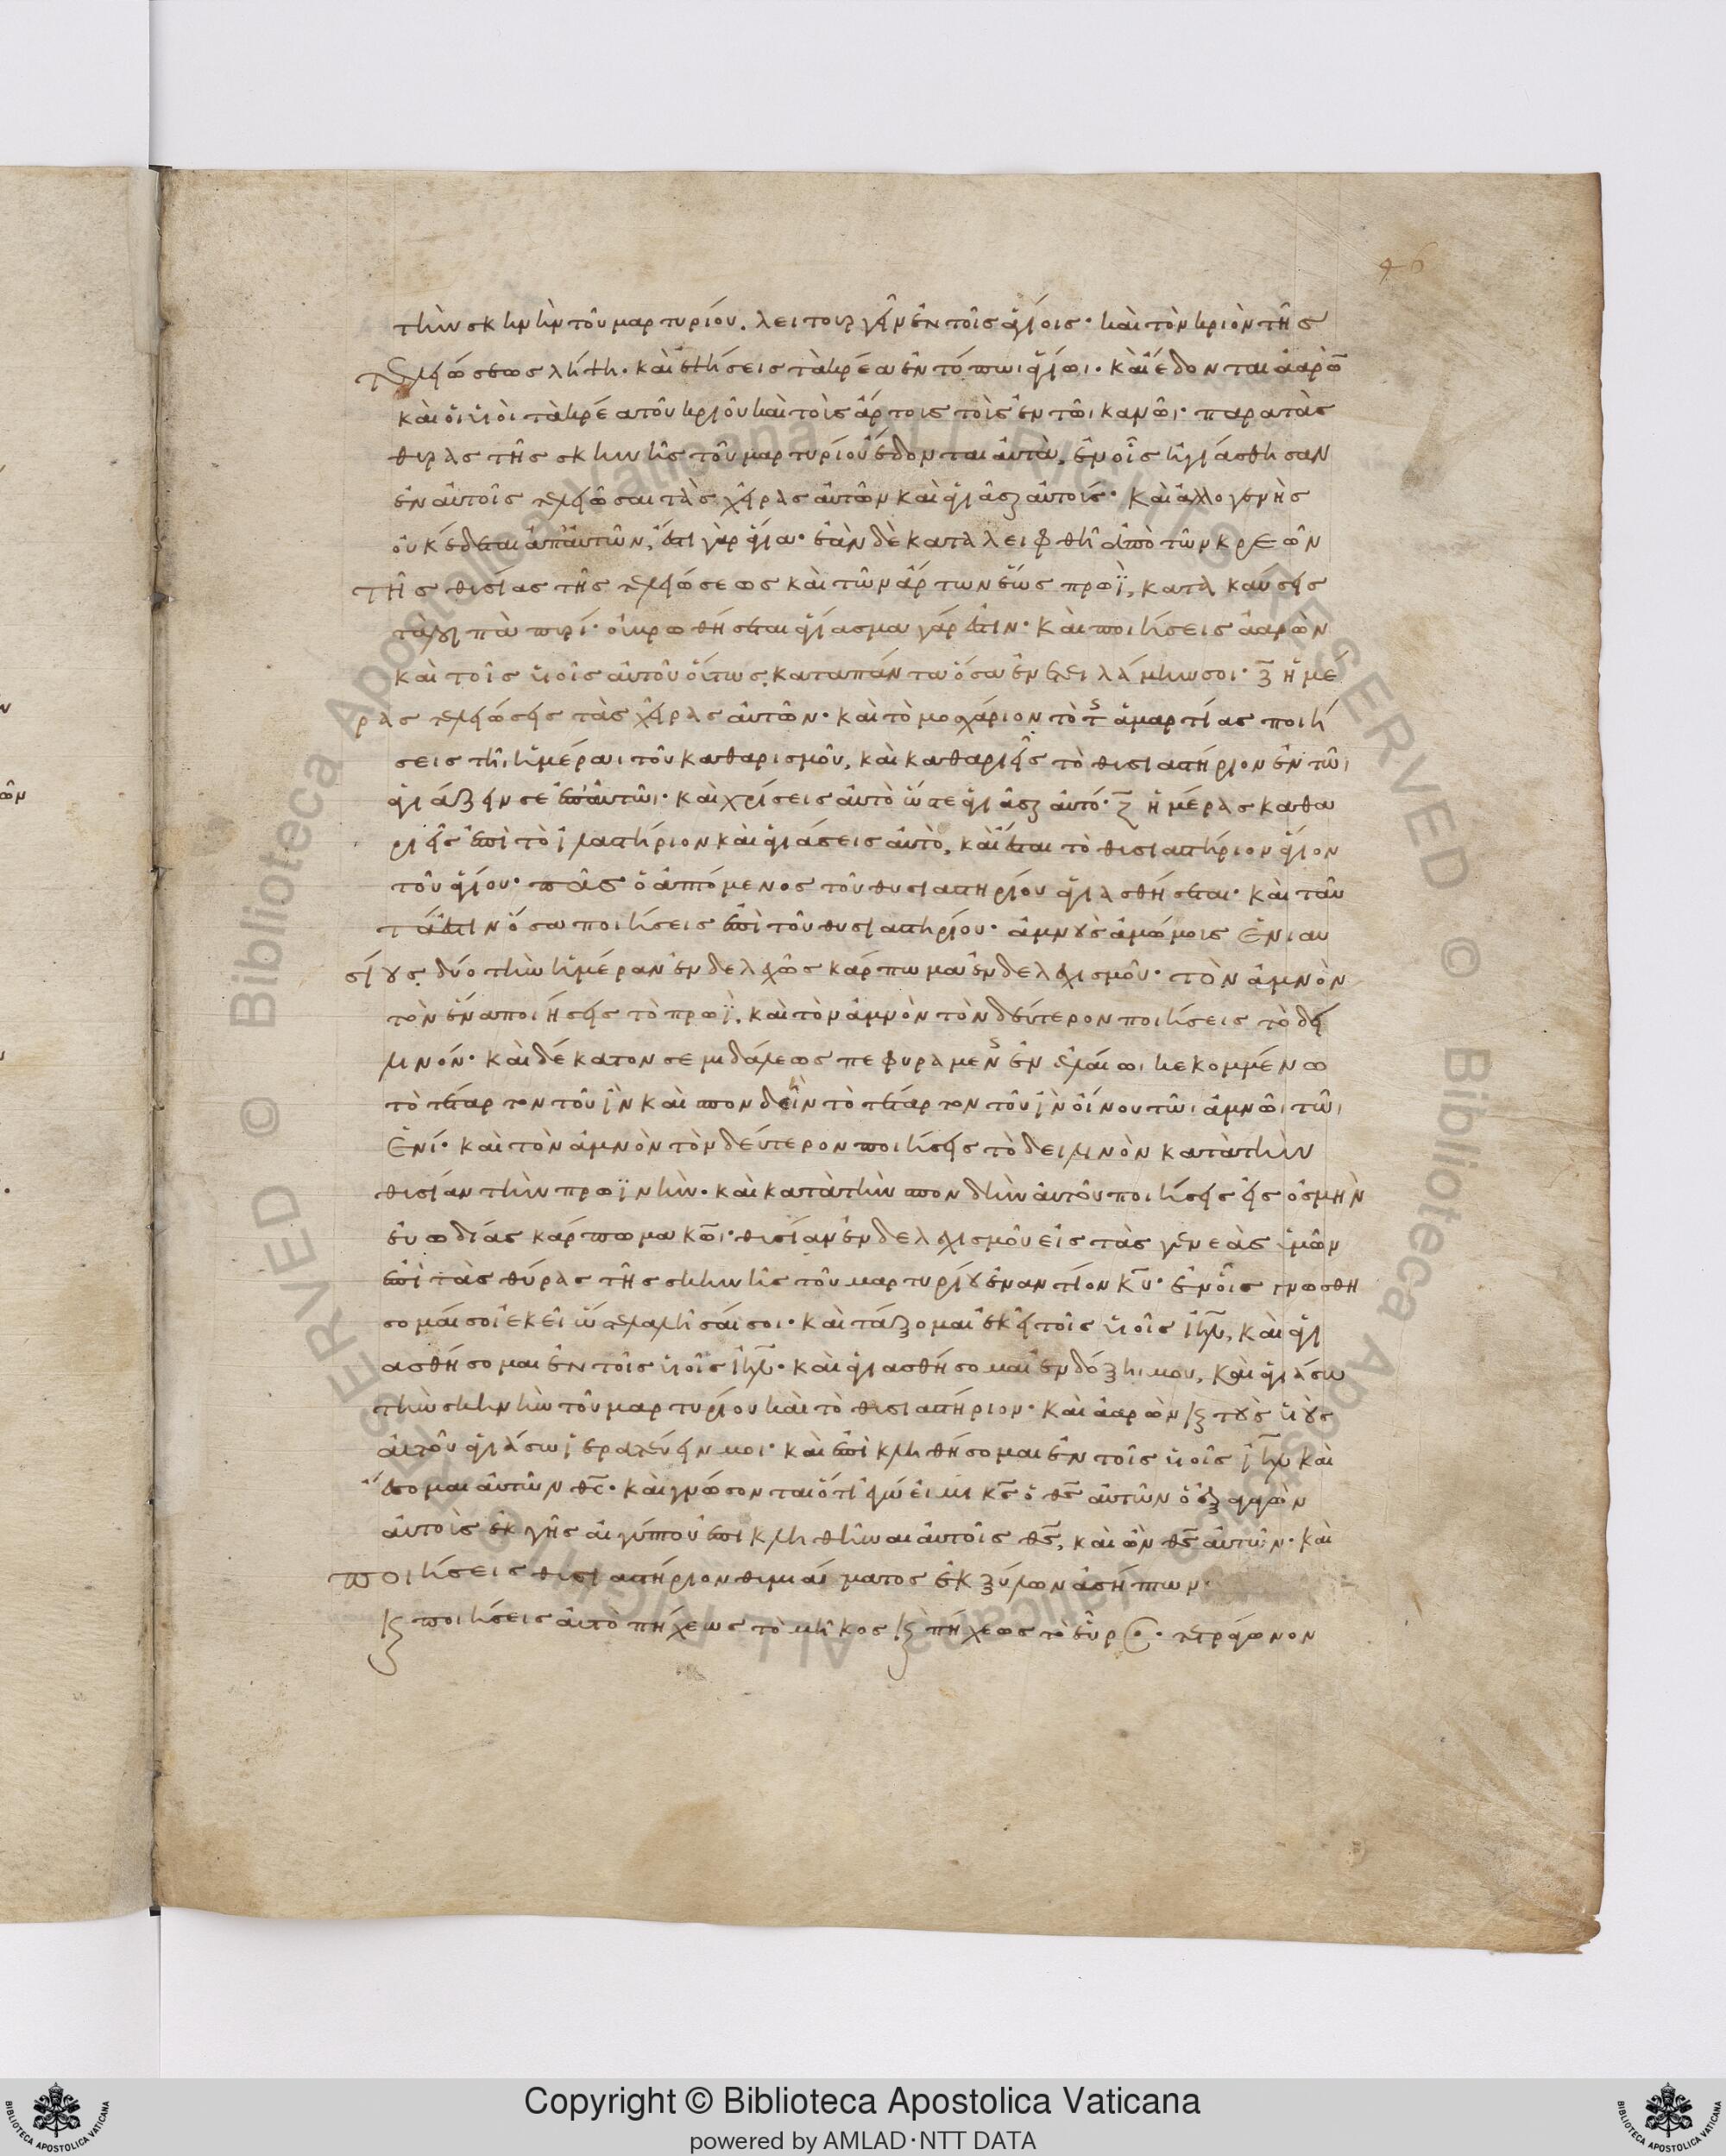 46
τὴν σκηνὴν τοῦ μαρτυρίου. λειτουργεῖν ἐν τοῖς ἁγίοις· καὶ τὸν κριὸν τῆς
τελειώσεως λήψη. καὶ ἑψήσεις τὰ κρέα ἐν τόπωι ἁγίωι. καὶ ἔδονται ἀαρὼ̄
καὶ οἱ υἱοὶ τὰ κρέα τοῦ κριοῦ καὶ τοὺς ἄρτους τοὺς ἐν τῶι κανῶι· παρα τὰς
θύρας τῆς σκηνῆς τοῦ μαρτυρίου ἔδονται αὐτὰ, ἐν οἷς ἡγιάσθησαν
ἐν αὐτοῖς τελειῶσαι τὰς χεῖρας αὐτῶν καὶ ἁγιάσαι αὐτούς· καὶ ἀλλογενὴς
οὐκ ἔδεται ἀπ' αὐτῶν, ἔστι γὰρ ἅγια· ἐὰν δὲ καταλειφθῆ ἀπὸ τῶν κρεῶν
τῆς θυσίας τῆς τελειώσεως καὶ τῶν ἄρτων ἕως πρωῒ, κατακαύσεις
τὰ λοιπὰ πυρί· οὐ βρωθήσεται ἁγίασμα γάρ ἐστιν· καὶ ποιήσεις ἀαρὼν
καὶ τοῖς υἱοῖς αὐτοῦ οὕτως, κατα πάντα ὅσα ἐνετειλάμην σοι· ζ̄ ἡμέ
ρας τελειώσεις τὰς χεῖρας αὐτῶν· καὶ τὸ μοχάριον τὸ τ̄ς ἁμαρτίας ποιή
σεις τῆι ἡμέραι τοῦ καθαρισμοῦ, καὶ καθαριεῖς τὸ θυσιαστήριον ἐν τῶι
ἁγιάζειν σε ἐπ' αὐτῶι· καὶ χρίσεις αὐτὸ ὥστε ἁγιάσαι αὐτό· ζ̄ ἡμέρας καθα
ριεῖς ἐπὶ τὸ ἱλαστήριον καὶ ἁγιάσεις αὐτὸ, καὶ ἔσται τὸ θυσιαστήριον ἅγιον
τοῦ ἁγίου· πᾶς ὁ ἁπτόμενος τοῦ θυσιαστηρίου ἁγιασθήσεται· καὶ ταῦ
τά ἐστιν ὅσα ποιήσεις ἐπὶ τοῦ θυσιαστηρίου· ἀμνοὺς ἀμώμους ἐνιαυ
σίους. δύο τὴν ἡμέραν ἐνδελεχῶς κάρπωμα ἐνδελεχισμοῦ· τὸν ἀμνὸν
τὸν ἕνα ποιήσεις τὸ πρωῒ. καὶ τὸν ἀμνὸν τὸν δεύτερον ποιήσεις τὸ δει
λινόν· καὶ δέκατον σεμιδάλεως πεφυραμεν̄ς ἐν ἐλαίωι κεκομμένω
τὸ τέταρτον τοῦ ἳν καὶ σπονδεῖν τὸ τέταρτον τοῦ ἳν οἴνου τῶι ἀμνῶι τῶι
ἑνί· καὶ τὸν ἀμνὸν τὸν δεύτερον ποιήσεις τὸ δειλινὸν κατὰ τὴν
θυσίαν τὴν πρωϊνὴν· καὶ κατὰ τὴν σπονδὴν αὐτοῦ ποιήσεις εἰς ὀσμὴν
εὐωδίας κάρπωμα κ̄ω̄ι· θυσίαν ἐνδελεχισμοῦ εἰς τὰς γενεὰς ὑμῶν
ἐπὶ τὰς θύρας τῆς σκηνῆς τοῦ μαρτυρίου ἐναντίον κ̄ῡ· ἐν οἷς γνωσθή
σομαί σοι ἐκεῖ ὥστε λαλῆσαί σοι· καὶ τάξομαι ἐκεῖ τοῖς υἱοῖς ἰη̄λ, καὶ ἁγι
ασθήσομαι ἐν τοῖς υἱοῖς ἰη̄λ· καὶ ἁγιασθήσομαι ἐν δόξηι μου, καὶ ἁγιάσω
τὴν σκηνὴν τοῦ μαρτυρίου καὶ τὸ θυσιαστήριον· καὶ ἀαρὼν κ̀ τοὺς υἱοὺς
αὐτοῦ ἁγιάσω ἱερατεύειν μοι· καὶ ἐπικληθήσομαι ἐν τοῖς υἱοῖς ἰη̄λ καὶ
ἔσομαι αὐτῶν θ̄ς· καὶ γνώσονται ὅτι ἐγώ εἰμι κ̄ς ὁ θ̄ς αὐτῶν ὁ ἐξαγαγὼν
αὐτοὺς ἐκ γῆς αἰγύπτου ἐπικληθῆναι αὐτοῖς θ̄ς, καὶ ὢν θ̄ς αὐτῶν· καὶ
ποιήσεις θυσιαστήριον θυμιάματος ἐκ ξύλων ἀσήπτων·
κ̀ ποιήσεις αὐτὸ πήχεως τὸ μῆκος κ̀ πήχεως τὸ εὖρος· τετράγωνον
Copyright © Biblioteca Apostolica Vaticana
powered by AMLAD·NTT DATA